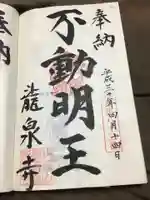 奉納
平成三十年四月十四日
不動明王
龍泉寺